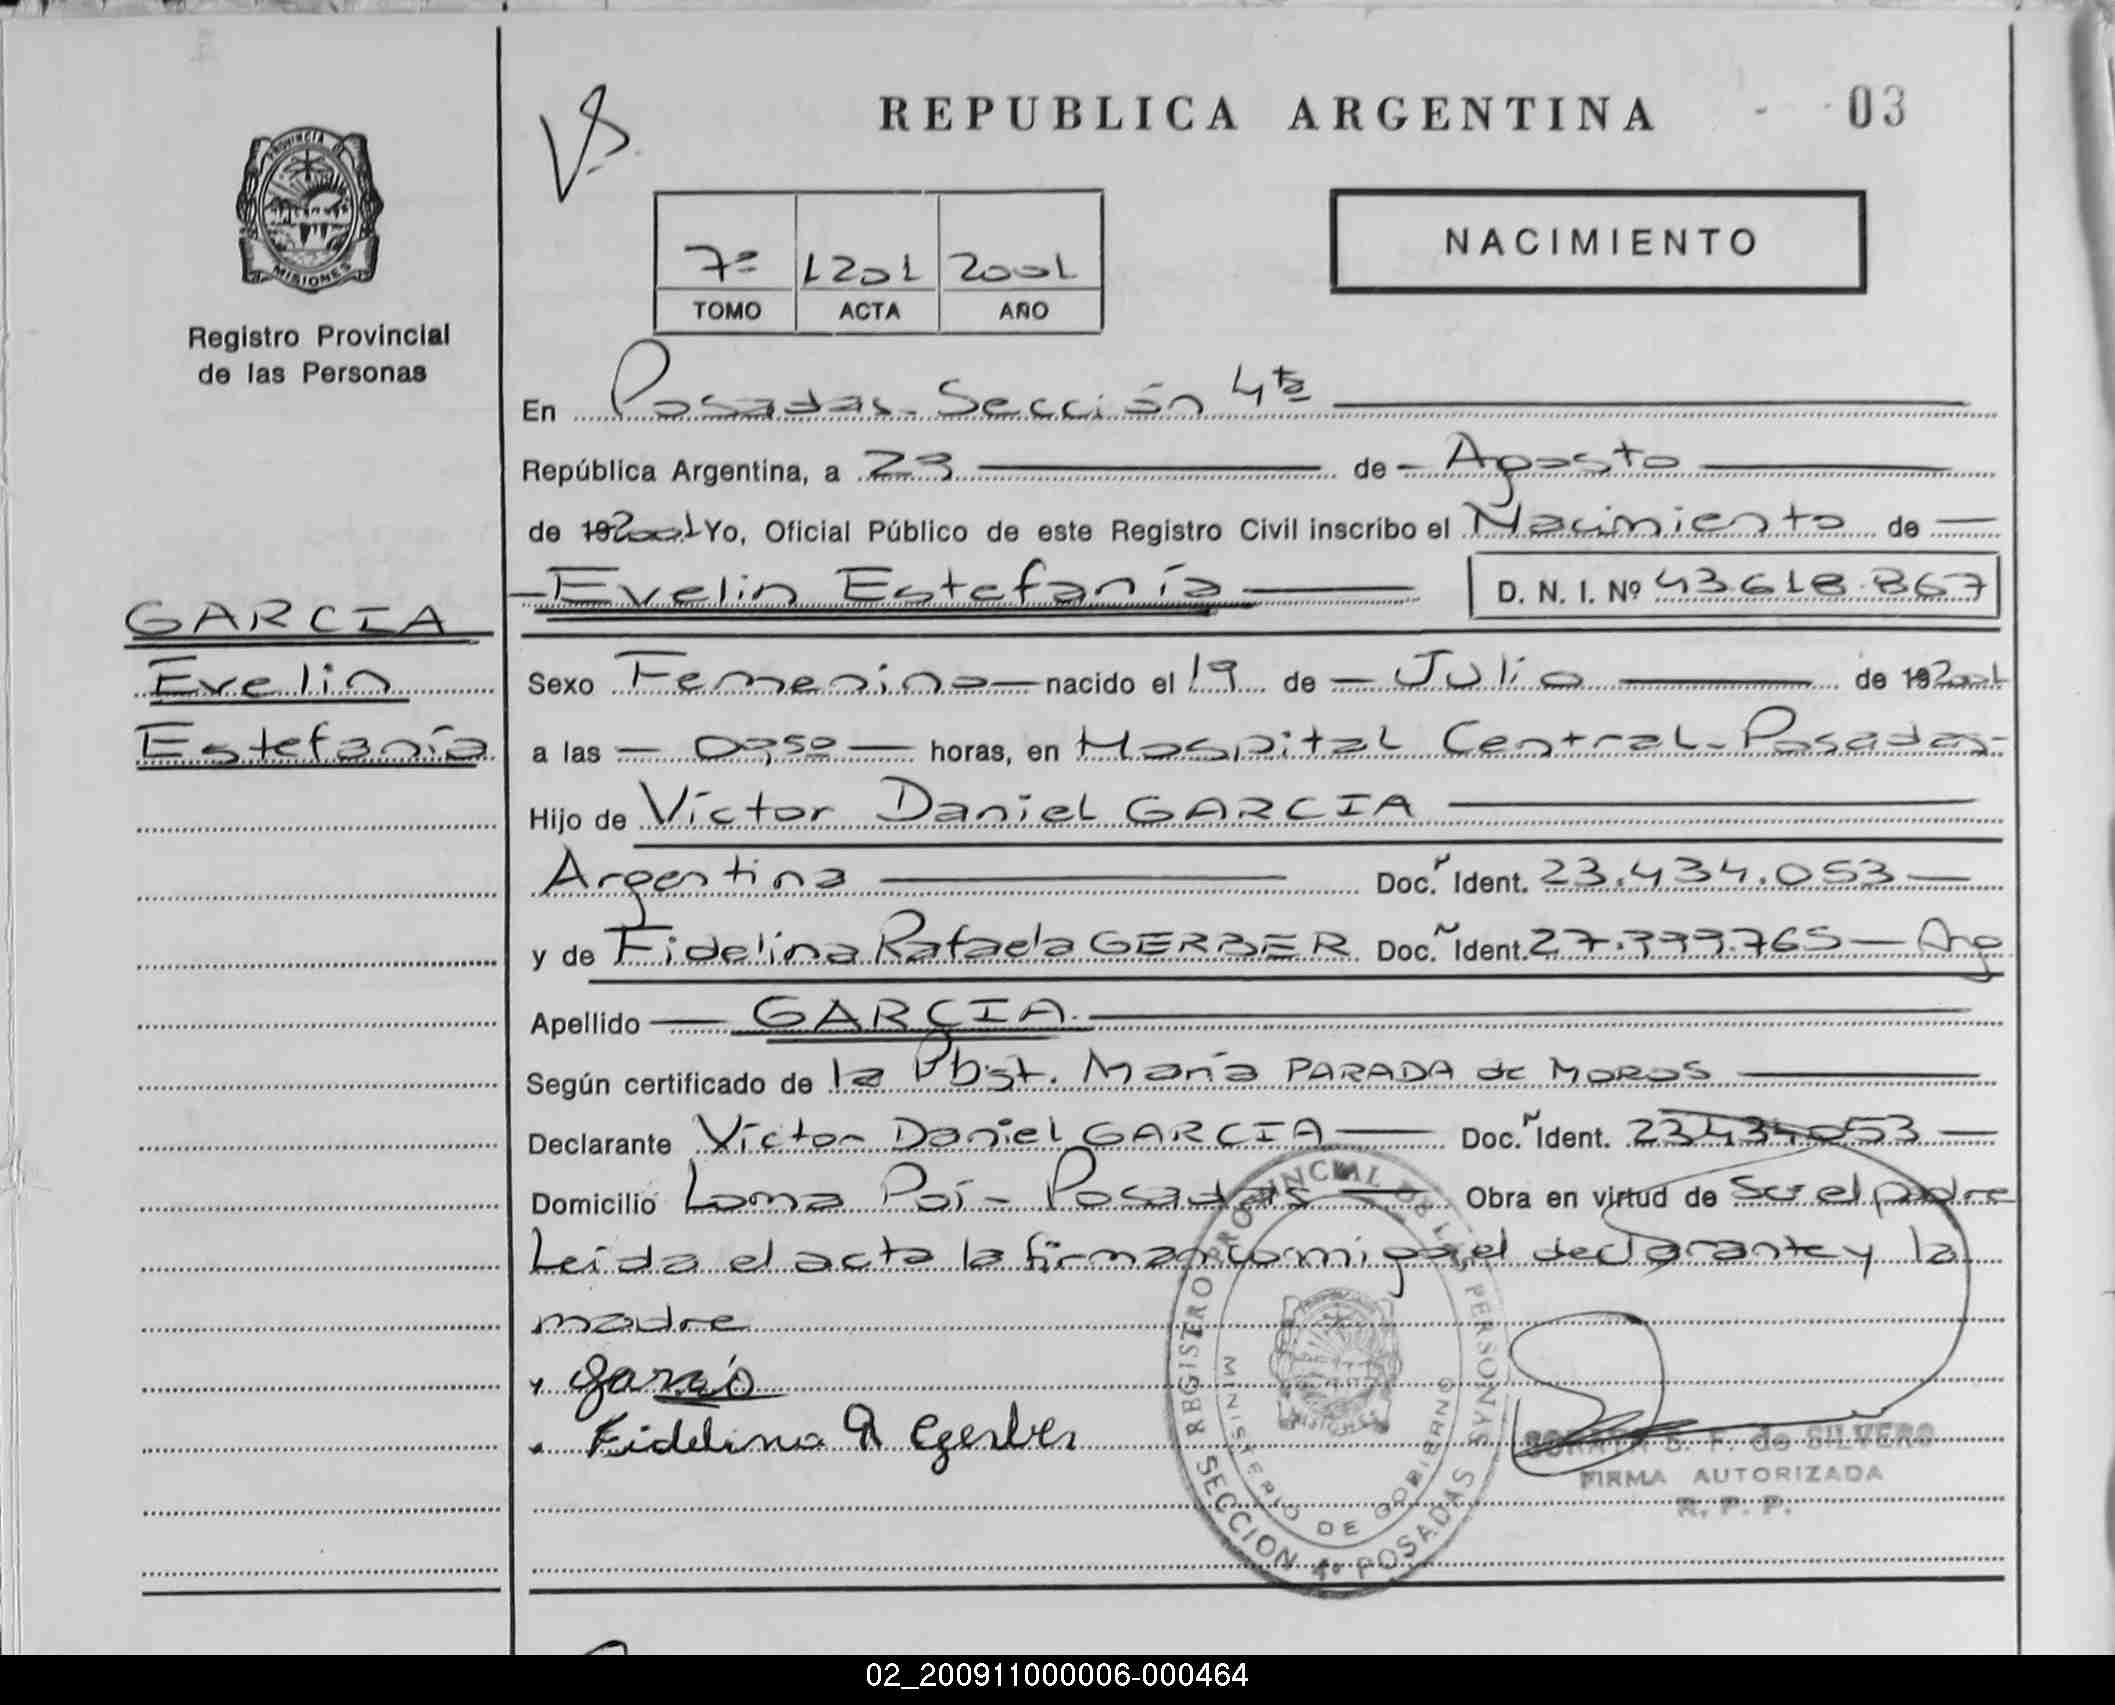 REPUBLICA ARGENTINA - 03
PROVINCIA DE
MISIONES
Registro Provincial
de las Personas
7º 1201 2001
TOMO ACTA AÑO
NACIMIENTO
En Posadas - Sección 4ta
República Argentina, a 23 de - Agosto
de 19 2001 Yo, Oficial Público de este Registro Civil inscribo el Nacimiento de
- Evelin Estefanía D. N. I. Nº 43.618.867
GARCIA
Evelin
Estefanía
Sexo Femenino - nacido el 19 de - Julio de 19 2001
a las - 07,50 - horas, en Hospital Central - Posadas -
Hijo de Víctor Daniel GARCIA
Argentina Doc. Ident. 23.434.053
y de Fidelina Rafaela GERBER Doc. Ident. 27.999.765 - Arg
Apellido - GARCIA.
Según certificado de la Obst. María PARADA de MOROS
Declarante Víctor Daniel GARCIA Doc. Ident. 23434053
Domicilio Loma Poí - Posadas Obra en virtud de Ser el padre
Leída el acta la firman conmigo el declarante y la
madre
García
Fidelina R Gerber
REGISTRO PROVINCIAL DE LAS PERSONAS
MINISTERIO DE GOBIERNO
SECCION 4º POSADAS
S. F. de SILVERO
FIRMA AUTORIZADA
R. P. P.
02_200911000006-000464